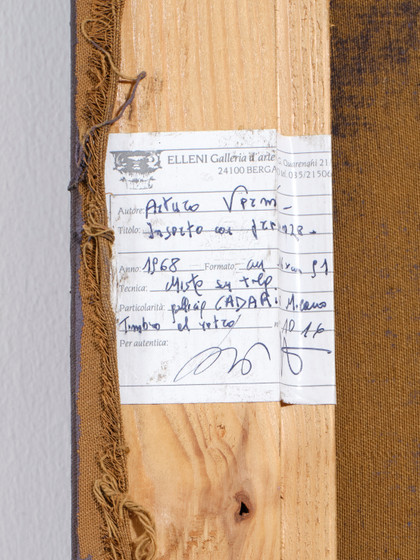 ELLENI Galleria d'arte Quarenghi 21
24100 BERGA tel. 035/21506
Autore: Arturo Verm
Titolo: Inserto con
Anno: 1968 Formato: cm 91
Tecnica: Misto su tela
Particolarità: CADARI Milano
Timbro al retro n° 1016
Per autentica: